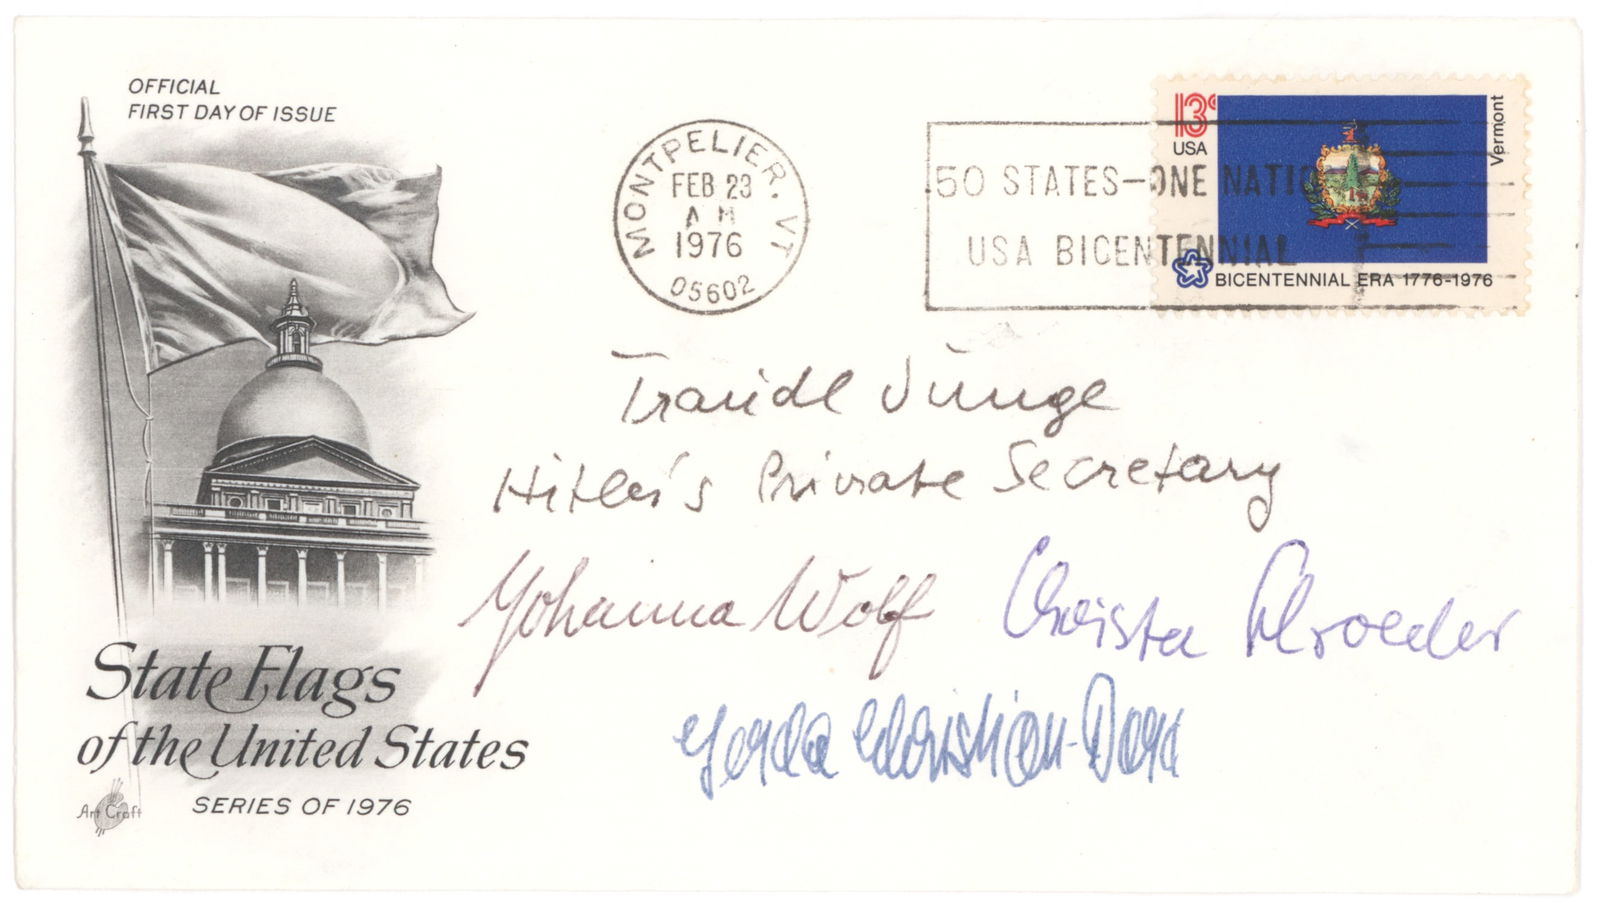 OFFICIAL
FIRST DAY OF ISSUE
MONTPELIER, VT
FEB 23
AM
1976
05602
50 STATES-ONE NATION
USA BICENTENNIAL
13c
USA
Vermont
BICENTENNIAL ERA 1776-1976
Traudl Junge
Hitler's Private Secretary
Johanna Wolf
Christa Schroeder
Gerda Christian-Dara
State Flags
of the United States
SERIES OF 1976
Art Craft